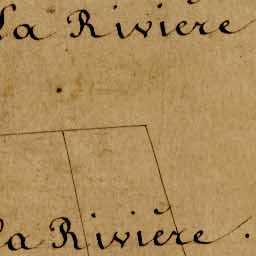 la Riviere
la Riviére.